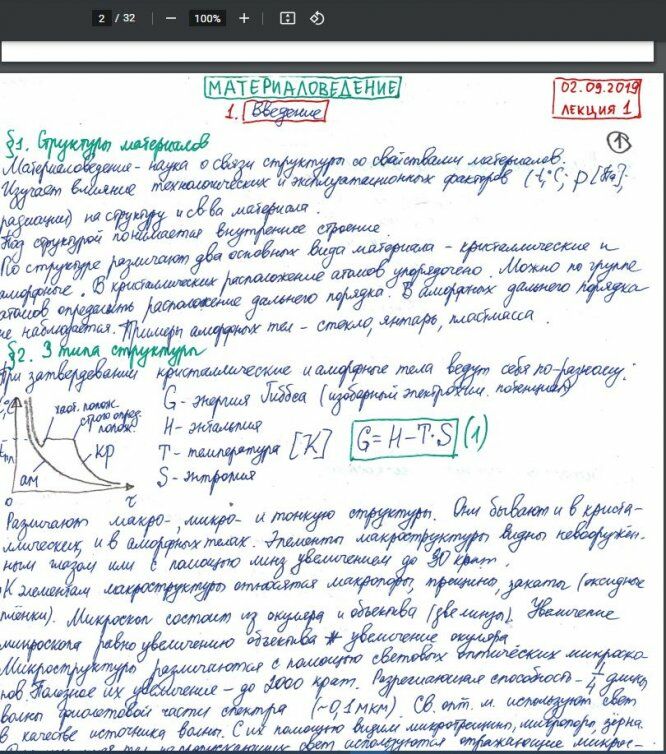 2 / 32 — 100% +
МАТЕРИАЛОВЕДЕНИЕ
02.09.2019
ЛЕКЦИЯ 1
1. Введение
1
§1. Структуры материалов
Материаловедение - наука о связи структуры со свойствами материалов.
Изучает влияние технологических и эксплуатационных факторов (t,°C; p [Па];
радиации) на структуру и св-ва материала.
Под структурой понимается внутреннее строение.
По структуре различают два основных вида материала - кристаллические и
аморфные. В кристаллических расположение атомов упорядочено. Можно по группе
атомов определить расположение дальнего порядка. В аморфных дальнего порядка
не наблюдается. Примеры аморфных тел - стекло, янтарь, пластмасса.
§2. 3 типа структуры
При затвердевании кристаллические и аморфные тела ведут себя по-разному:
хаот. полож.
строго опред.
полож.
ам
кр
0
τ
G - энергия Гиббса (изобарный электрохим. потенциал)
H - энтальпия
T - температура [K]
S - энтропия
G = H - T·S (1)
Различают макро-, микро- и тонкую структуры. Они бывают и в криста-
ллических, и в аморфных телах. Элементы макроструктуры видны невооружён-
ным глазом или с помощью линз увеличением до 30 крат.
К элементам макроструктуры относятся макропоры, трещины, закаты (оксидные
плёнки). Микроскоп состоит из окуляра и объектива (две линзы). Увеличение
микроскопа равно увеличению объектива * увеличение окуляра
Микроструктуры различаются с помощью световых оптических микроско-
пов. Полезное их увеличение - до 2000 крат. Разрешающая способность - 1/4 длины
волны фиолетовой части спектра (~0,1мкм). Св. опт. м. используют свет
в качестве источника волны. С их помощью видим микротрещины, микропоры, зерна.
свет используются отражающие микрос-